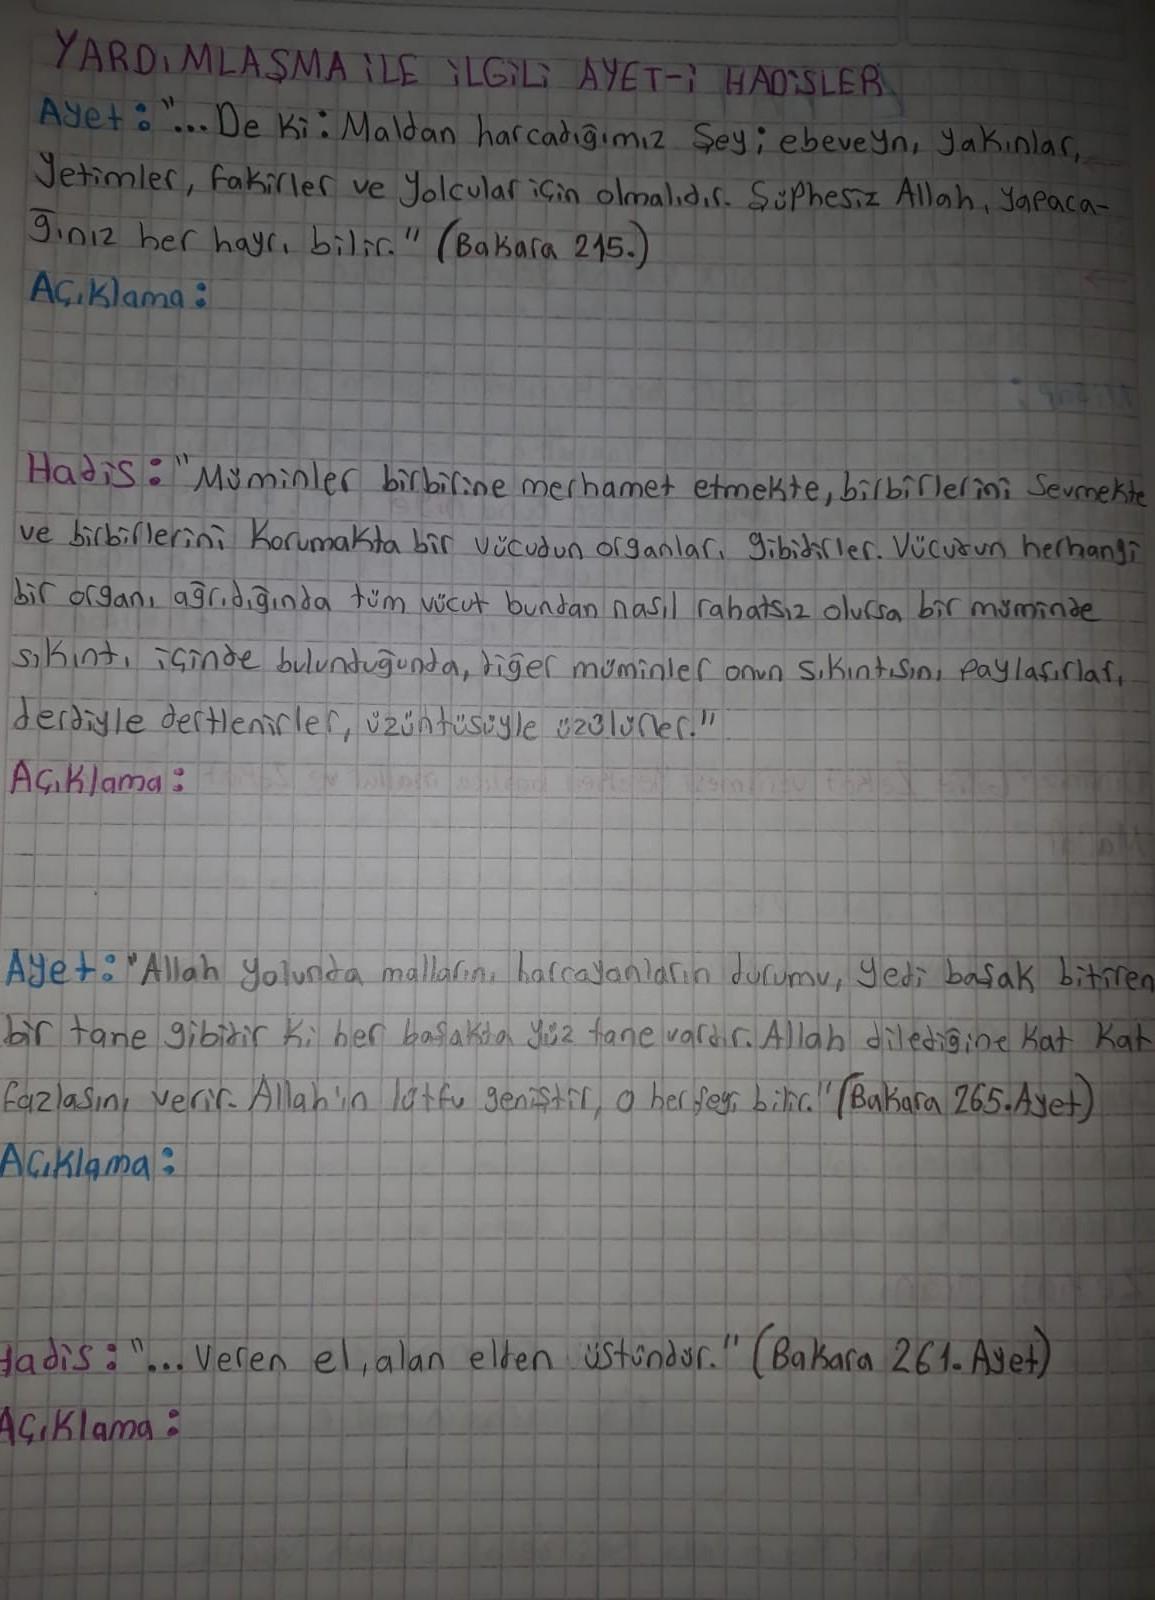 YARDıMLAŞMA iLE iLGiLi AYET-i HADiSLER
Ayet: "... De ki: Maldan harcadığımız Şey; ebeveyn, yakınlar,
Yetimler, fakirler ve yolcular için olmalıdır. Şüphesiz Allah, yapaca-
ğınız her hayrı bilir." (Bakara 215.)
Açıklama:
Hadis: "Müminler birbirine merhamet etmekte, birbirlerini Sevmekte
ve birbirlerini korumakta bir vücudun organları gibidirler. Vücudun herhangi
bir organı ağrıdığında tüm vücut bundan nasıl rahatsız olursa bir müminde
sıkıntı içinde bulunduğunda, diğer müminler onun sıkıntısını paylaşırlar,
derdiyle dertlenirler, üzüntüsüyle üzülürler."
Açıklama:
Ayet: "Allah yolunda mallarını harcayanların durumu, yedi başak bitiren
bir tane gibidir ki her başakta yüz tane vardır. Allah dilediğine kat kat
fazlasını verir. Allah'ın lütfu geniştir, o herşeyi bilir." (Bakara 265. Ayet)
Açıklama:
Hadis: "... Veren el, alan elden üstündür." (Bakara 261. Ayet)
Açıklama: